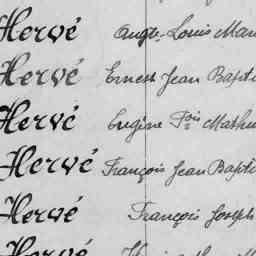 Hervé Augte Louis Mar
Hervé Ernest Jean Bapti
Hervé Eugène Fçois Mathu
Hervé François Jean Bapti
Hervé François Joseph
Hervé